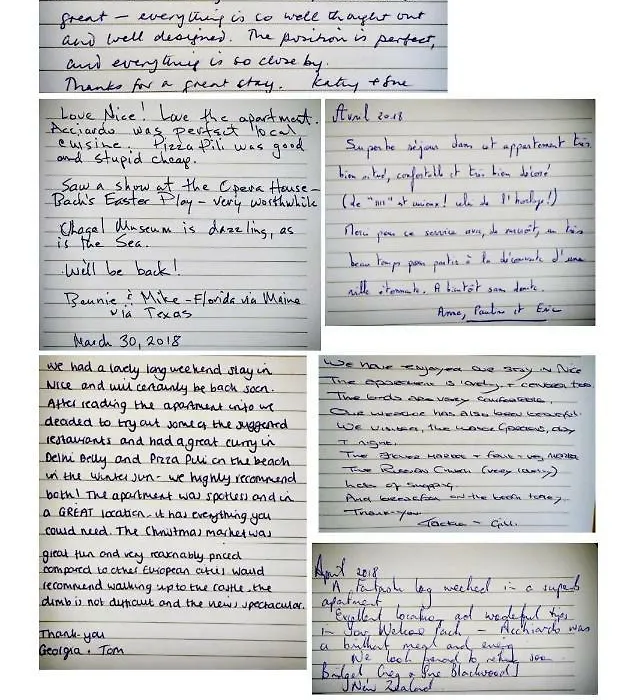 great - everything is so well thought out
and well designed. The position is perfect,
and everything is so close by.
Thanks for a great stay. Kathy + Sue
Love Nice! Love the apartment.
Acciardo was perfect local
cuisine. Pizza Pili was good
and stupid cheap.
Saw a show at the Opera House -
Bach's Easter Play - very worthwhile
Chagal Museum is dazzling, as
is the Sea.
We'll be back!
Bonnie & Mike - Florida via Maine
via Texas
March 30, 2018
Avril 2018
Superbe séjour dans cet appartement très
bien situé, confortable et très bien décoré
(de "mi" et anciens! celui de l'horloge!)
Merci pour ce service
beau temps pour partir à la découverte d'une
ville étonnante. A bientôt sans doute.
Anne, Pauline et Eric
We had a lovely long weekend stay in
Nice and will certainly be back soon.
After reading the apartment info we
decided to try out some of the suggested
restaurants and had a great curry in
Delhi Belly and Pizza Pili on the beach
in the winter sun - we highly recommend
both! The apartment was spotless and in
a GREAT location - it has everything you
could need. The Christmas market was
great fun and very reasonably priced
compared to other European cities. Would
recommend walking up to the castle, the
climb is not difficult and the views spectacular.
Thank you
Georgia + Tom
We have enjoyed our stay in Nice
The apartment is lovely +
The beds are very comfortable.
Our weather has also been beautiful.
We visited, the day
+ night.
The
The Russian Church (very lovely)
Lots of shopping
And breakfast on the beach today
Thank-you
Jackie - Gill.
April 2018
A Fantastic long weekend in a superb
apartment
Excellent location, and wonderful tips
in your Welcome Pack - Acchiardo was
a brilliant meal and evening
We look forward to return soon
Bridget Greg + Sue Blackwood
New Zealand